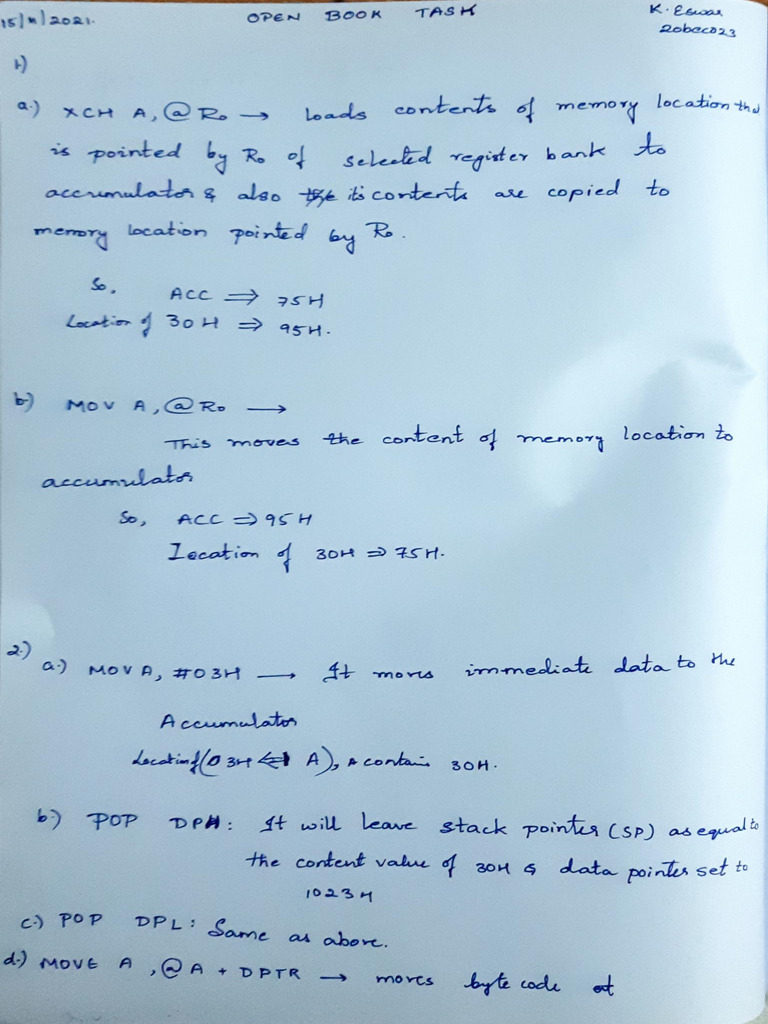 15/11/2021.
OPEN BOOK TASK
K. Eswar
20bec023
1)
a.) XCH A, @ R0 → Loads contents of memory location tha
is pointed by R0 of selected register bank to
accumulator & also its contents are copied to
memory location pointed by R0.
So, ACC ⇒ 75H
Location of 30H ⇒ 95H.
b) MOV A, @ R0 →
This moves the content of memory location to
accumulator
So, ACC ⇒ 95H
Location of 30H ⇒ 75H.
2.)
a.) MOV A, #03H → It moves immediate data to the
Accumulator
Location of (03H A), A contains 30H.
b.) POP DPH: It will leave stack pointer (SP) as equal to
the content value of 30H & data pointer set to
1023H
c.) POP DPL: Same as above.
d.) MOVE A, @ A + DPTR → moves byte code at